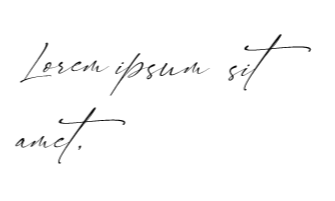 Lorem ipsum sit
amet.